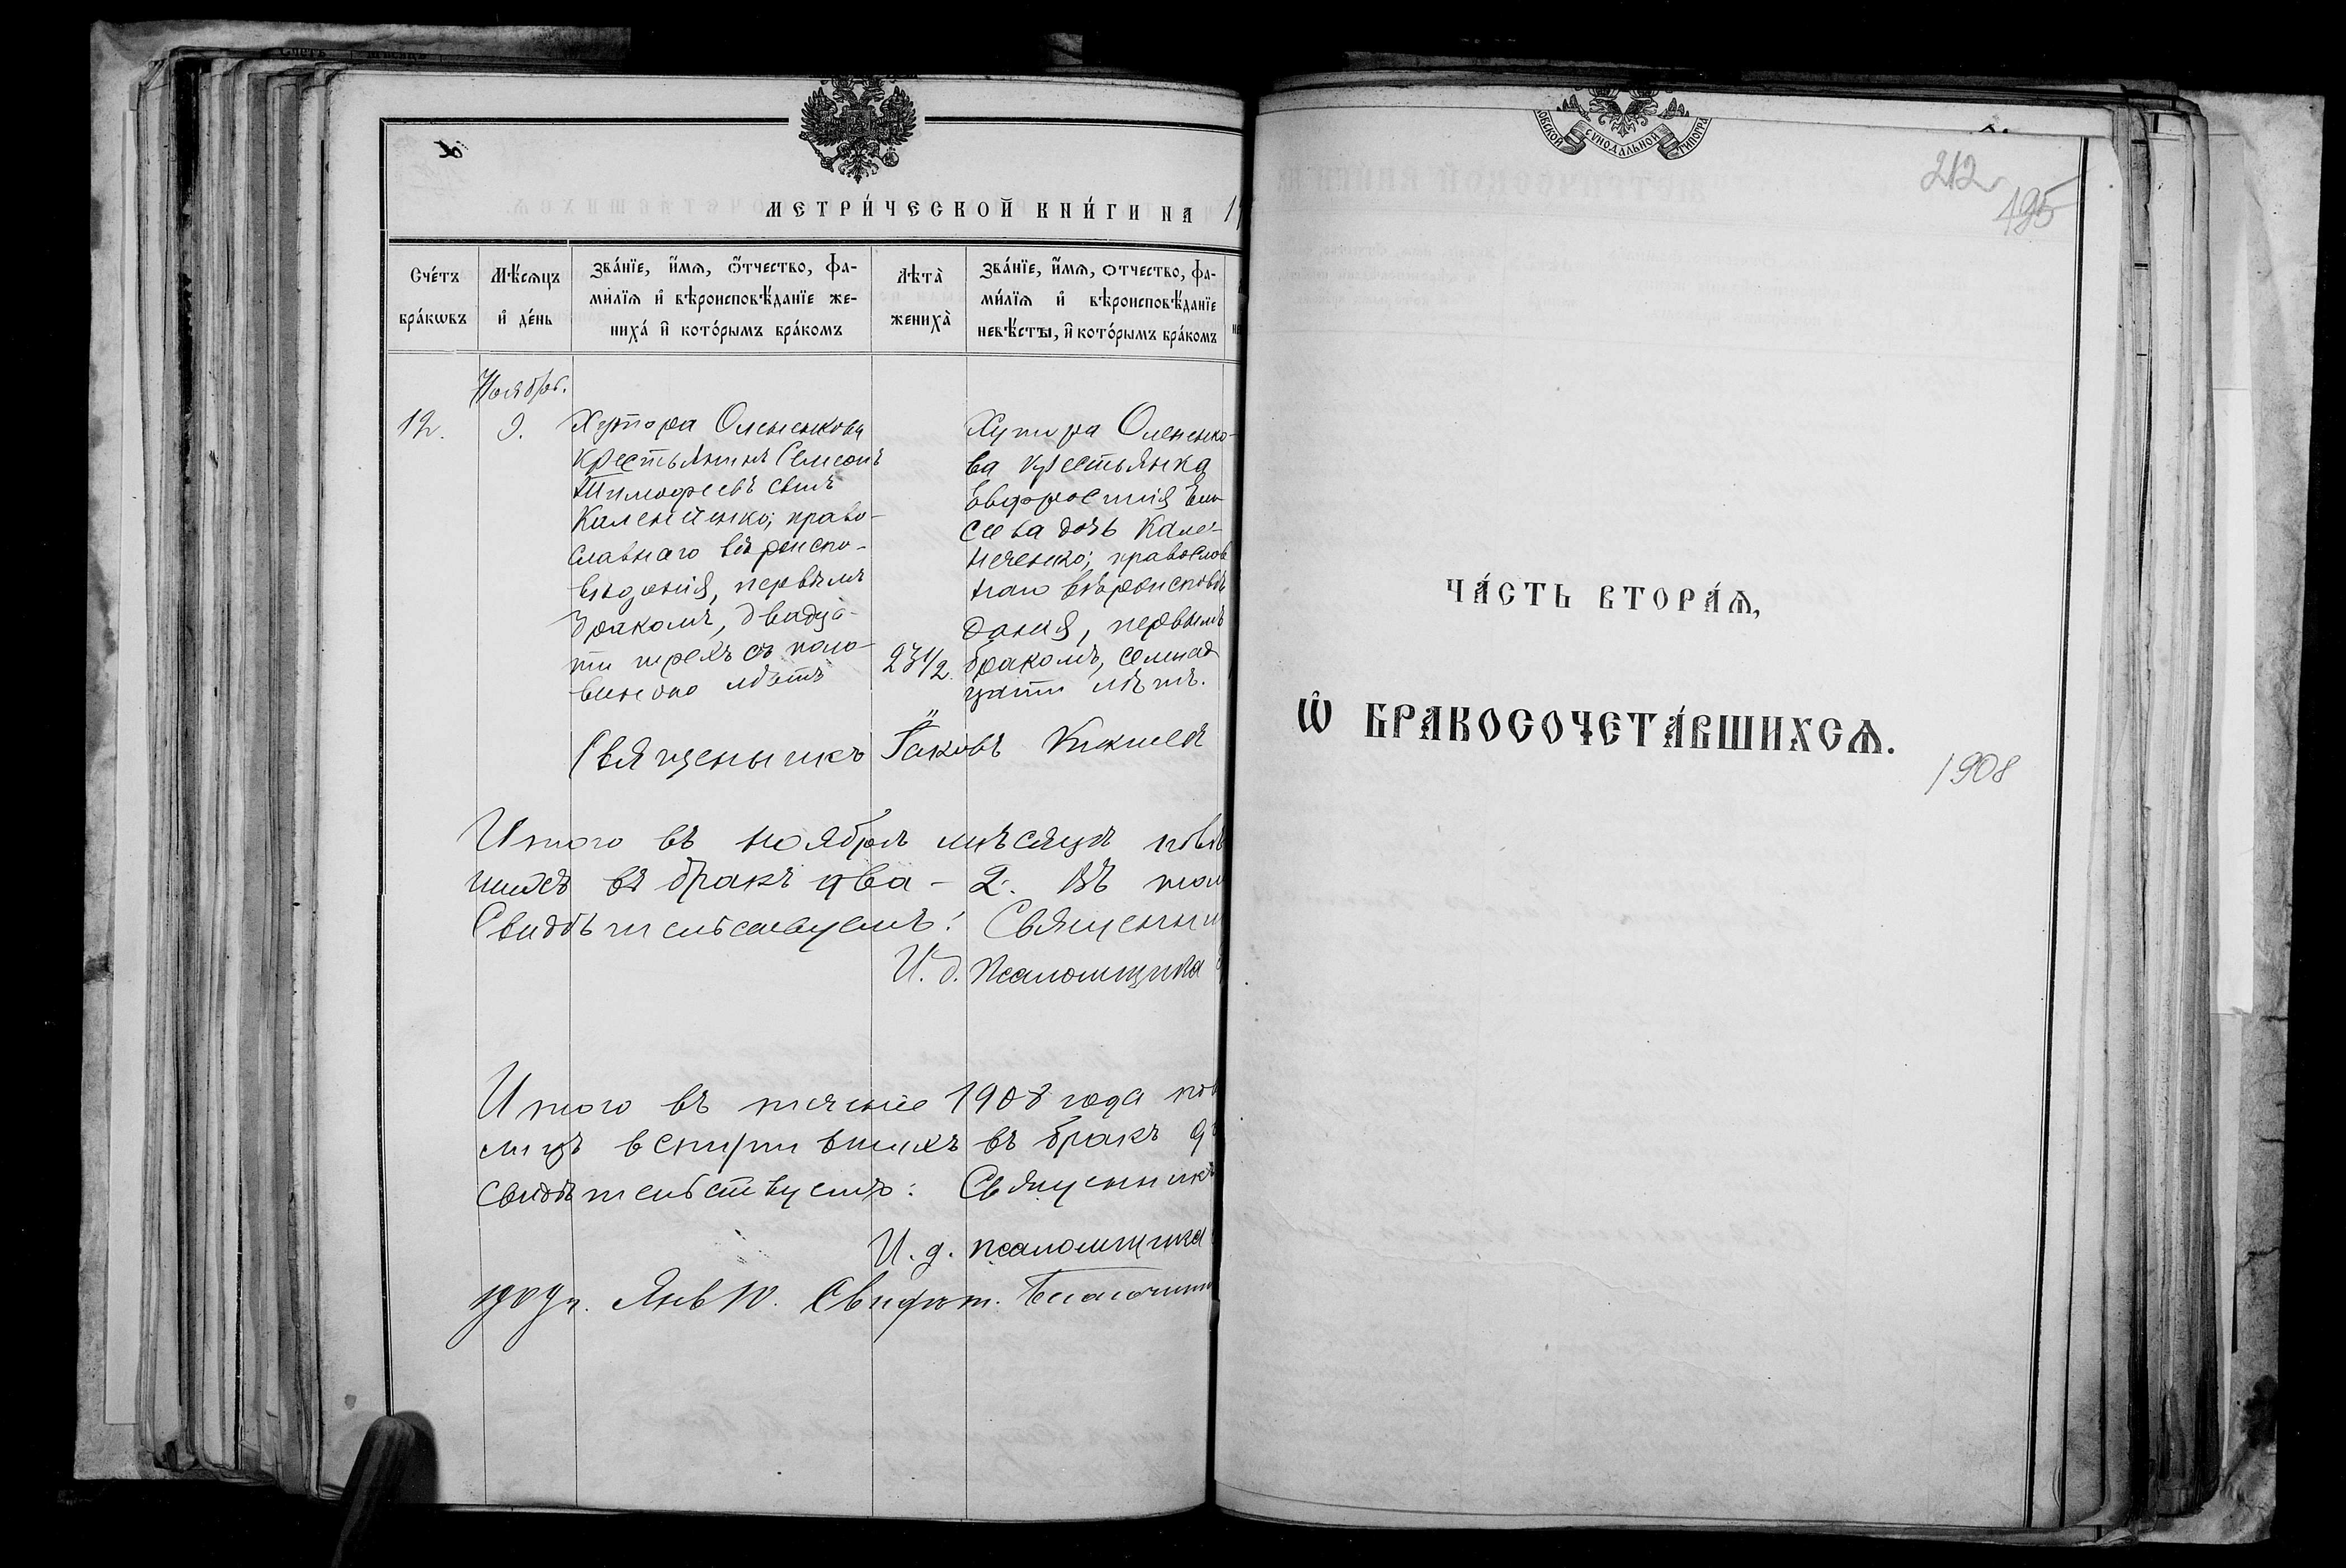 МЕТРИ́ЧЕСКОЙ КНИ́ГИ НА
Сче́тъ бра́кωвъ
Мѣ́сѧцъ и҆ де́нь
Зва́нїе, и҆́мѧ, ѻ҆́тчество, фа-
ми́лїѧ и҆ вѣроисповѣ́данїе же-
ниха́ и҆ кото́рымъ бра́комъ
Лѣта̀ жениха̀
Зва́нїе, и҆́мѧ, ѻтчество, фа-
ми́лїѧ и҆ вѣроисповѣ́данїе
невѣ́сты, и҆ кото́рымъ бра́комъ
Ноябрь.
12.
9.
Хутора Оленькова
крестьянинъ
Тимофеевъ сынъ
право-
славнаго вѣроиспо-
вѣданія, первымъ
бракомъ, двадца-
ти трехъ съ поло-
виною лѣтъ
23 1/2.
Хутора Оленько-
ва крестьянка
Евфросинія Ели-
сеева дочь Кале-
ниченко; православ
наго вѣроисповѣ
данія, первымъ
бракомъ, семнад
цати лѣтъ.
Священникъ Іаковъ
Итого въ ноябрѣ мѣсяцѣ повѣ
въ бракъ два – 2. Въ том
Свидѣтельствуемъ: Священни
И. д. псаломщика
Итого въ теченіе 1908 года пов
лицъ вступившихъ въ бракъ
свидѣтельствуемъ: Священникъ
И. д. псаломщика
1909 г. Янв 10. Свидѣт. Благочин
СКОЙ СУНОДАЛЬНОЙ ТИПОГРА
212
195
ЧА́СТЬ ВТОРА́Ѧ,
Ѽ БРАКОСОЧЕТА́ВШИХСѦ.
1908